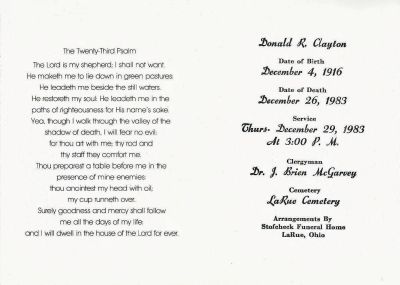 The Twenty-Third Psalm
The Lord is my shepherd; I shall not want.
He maketh me to lie down in green pastures
He leadeth me beside the still waters.
He restoreth my soul: He leadeth me in the
paths of righteousness for His name's sake.
Yea, though I walk through the valley of the
shadow of death, I will fear no evil:
for thou art with me; thy rod and
thy staff they comfort me.
Thou preparest a table before me in the
presence of mine enemies:
thou anointest my head with oil;
my cup runneth over.
Surely goodness and mercy shall follow
me all the days of my life:
and I will dwell in the house of the Lord for ever.
Donald R. Clayton
Date of Birth
December 4, 1916
Date of Death
December 26, 1983
Service
Thurs. December 29, 1983
At 3:00 P. M.
Clergyman
Dr. J. Brien McGarvey
Cemetery
LaRue Cemetery
Arrangements By
Stofcheck Funeral Home
LaRue, Ohio